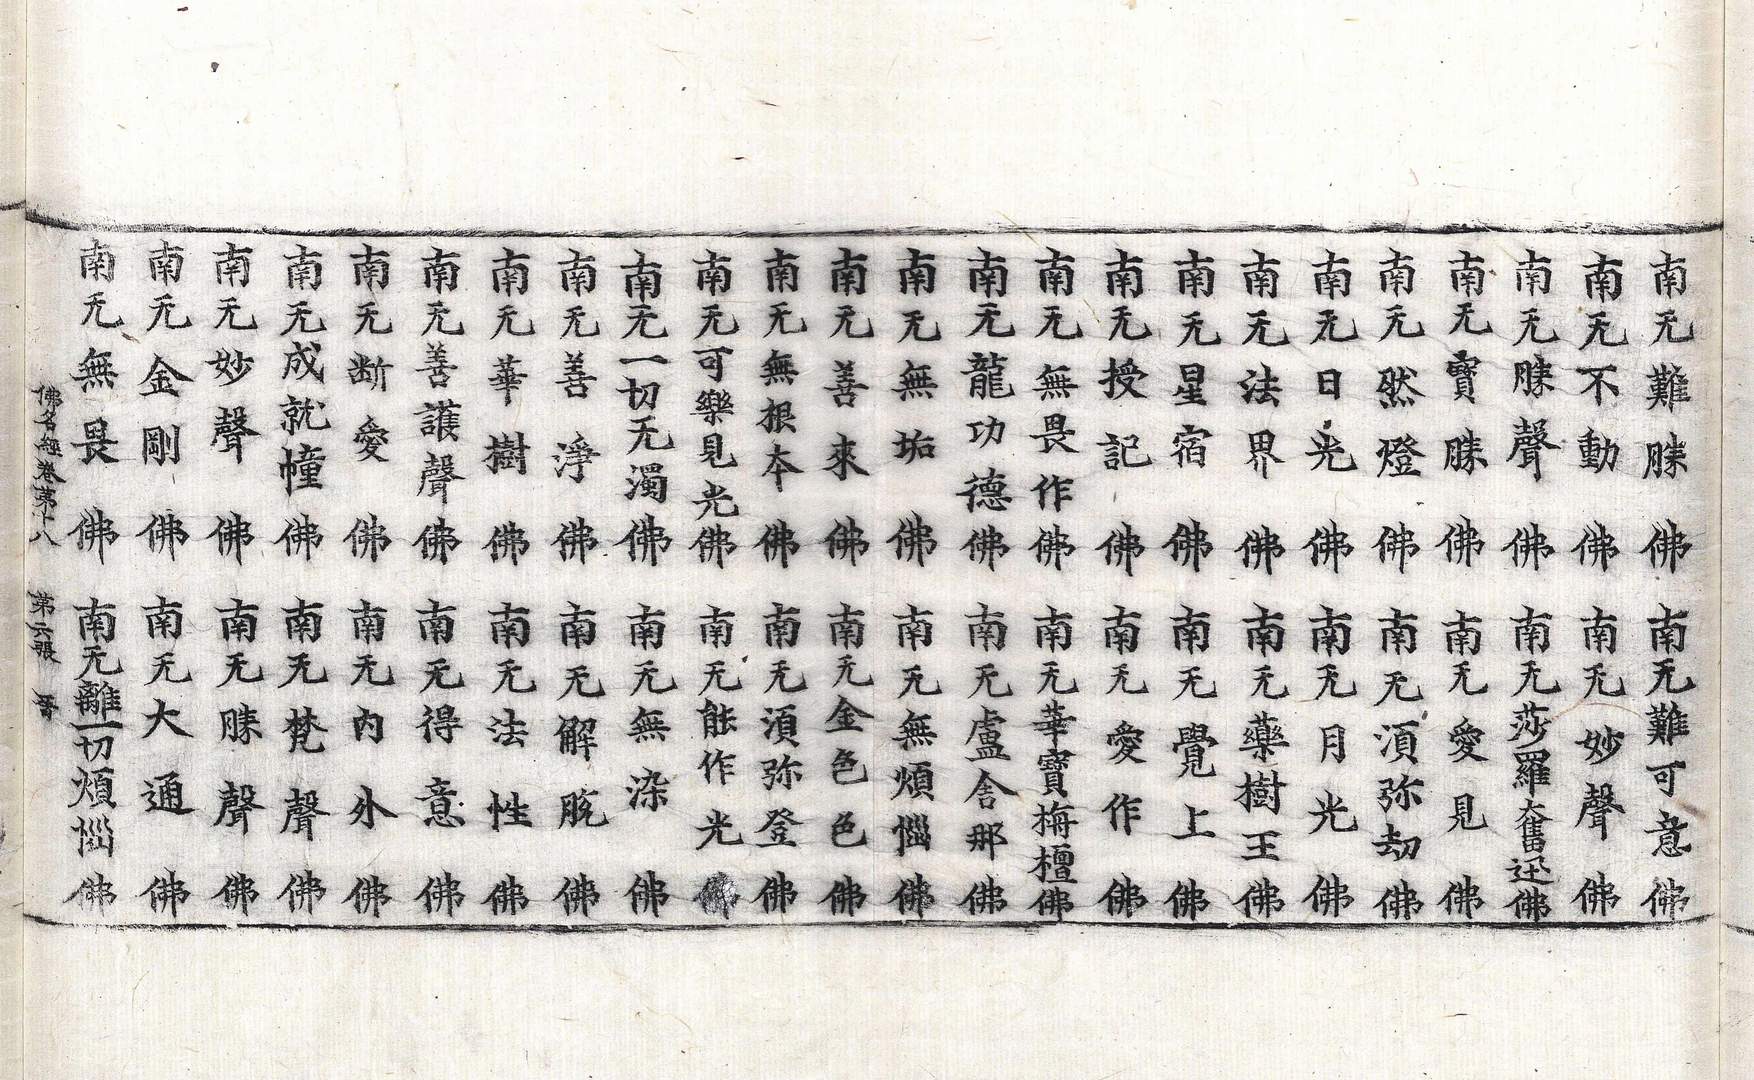 南无難勝佛南无難可意佛
南无不動佛南无妙聲佛
南无勝聲佛南无莎羅奮迅佛
南无寶勝佛南无愛見佛
南无然燈佛南无湏弥劫佛
南无日光佛南无月光佛
南无法界佛南无藥樹王佛
南无星宿佛南无覺上佛
南无授記佛南无愛作佛
南无無畏作佛南无華寶栴檀佛
南无龍功德佛南无盧舍那佛
南无無垢佛南无無煩惱佛
南无善來佛南无金色色佛
南无無根本佛南无湏弥登佛
南无可樂見光佛南无能作光佛
南无一切无濁佛南无無染佛
南无善淨佛南无解脫佛
南无華樹佛南无法性佛
南无善護聲佛南无得意佛
南无断愛佛南无內外佛
南无成就幢佛南无梵聲佛
南无妙聲佛南无勝聲佛
南无金剛佛南无大通佛
南无無畏佛南无離一切煩惱佛
佛名經卷第十八 第六張